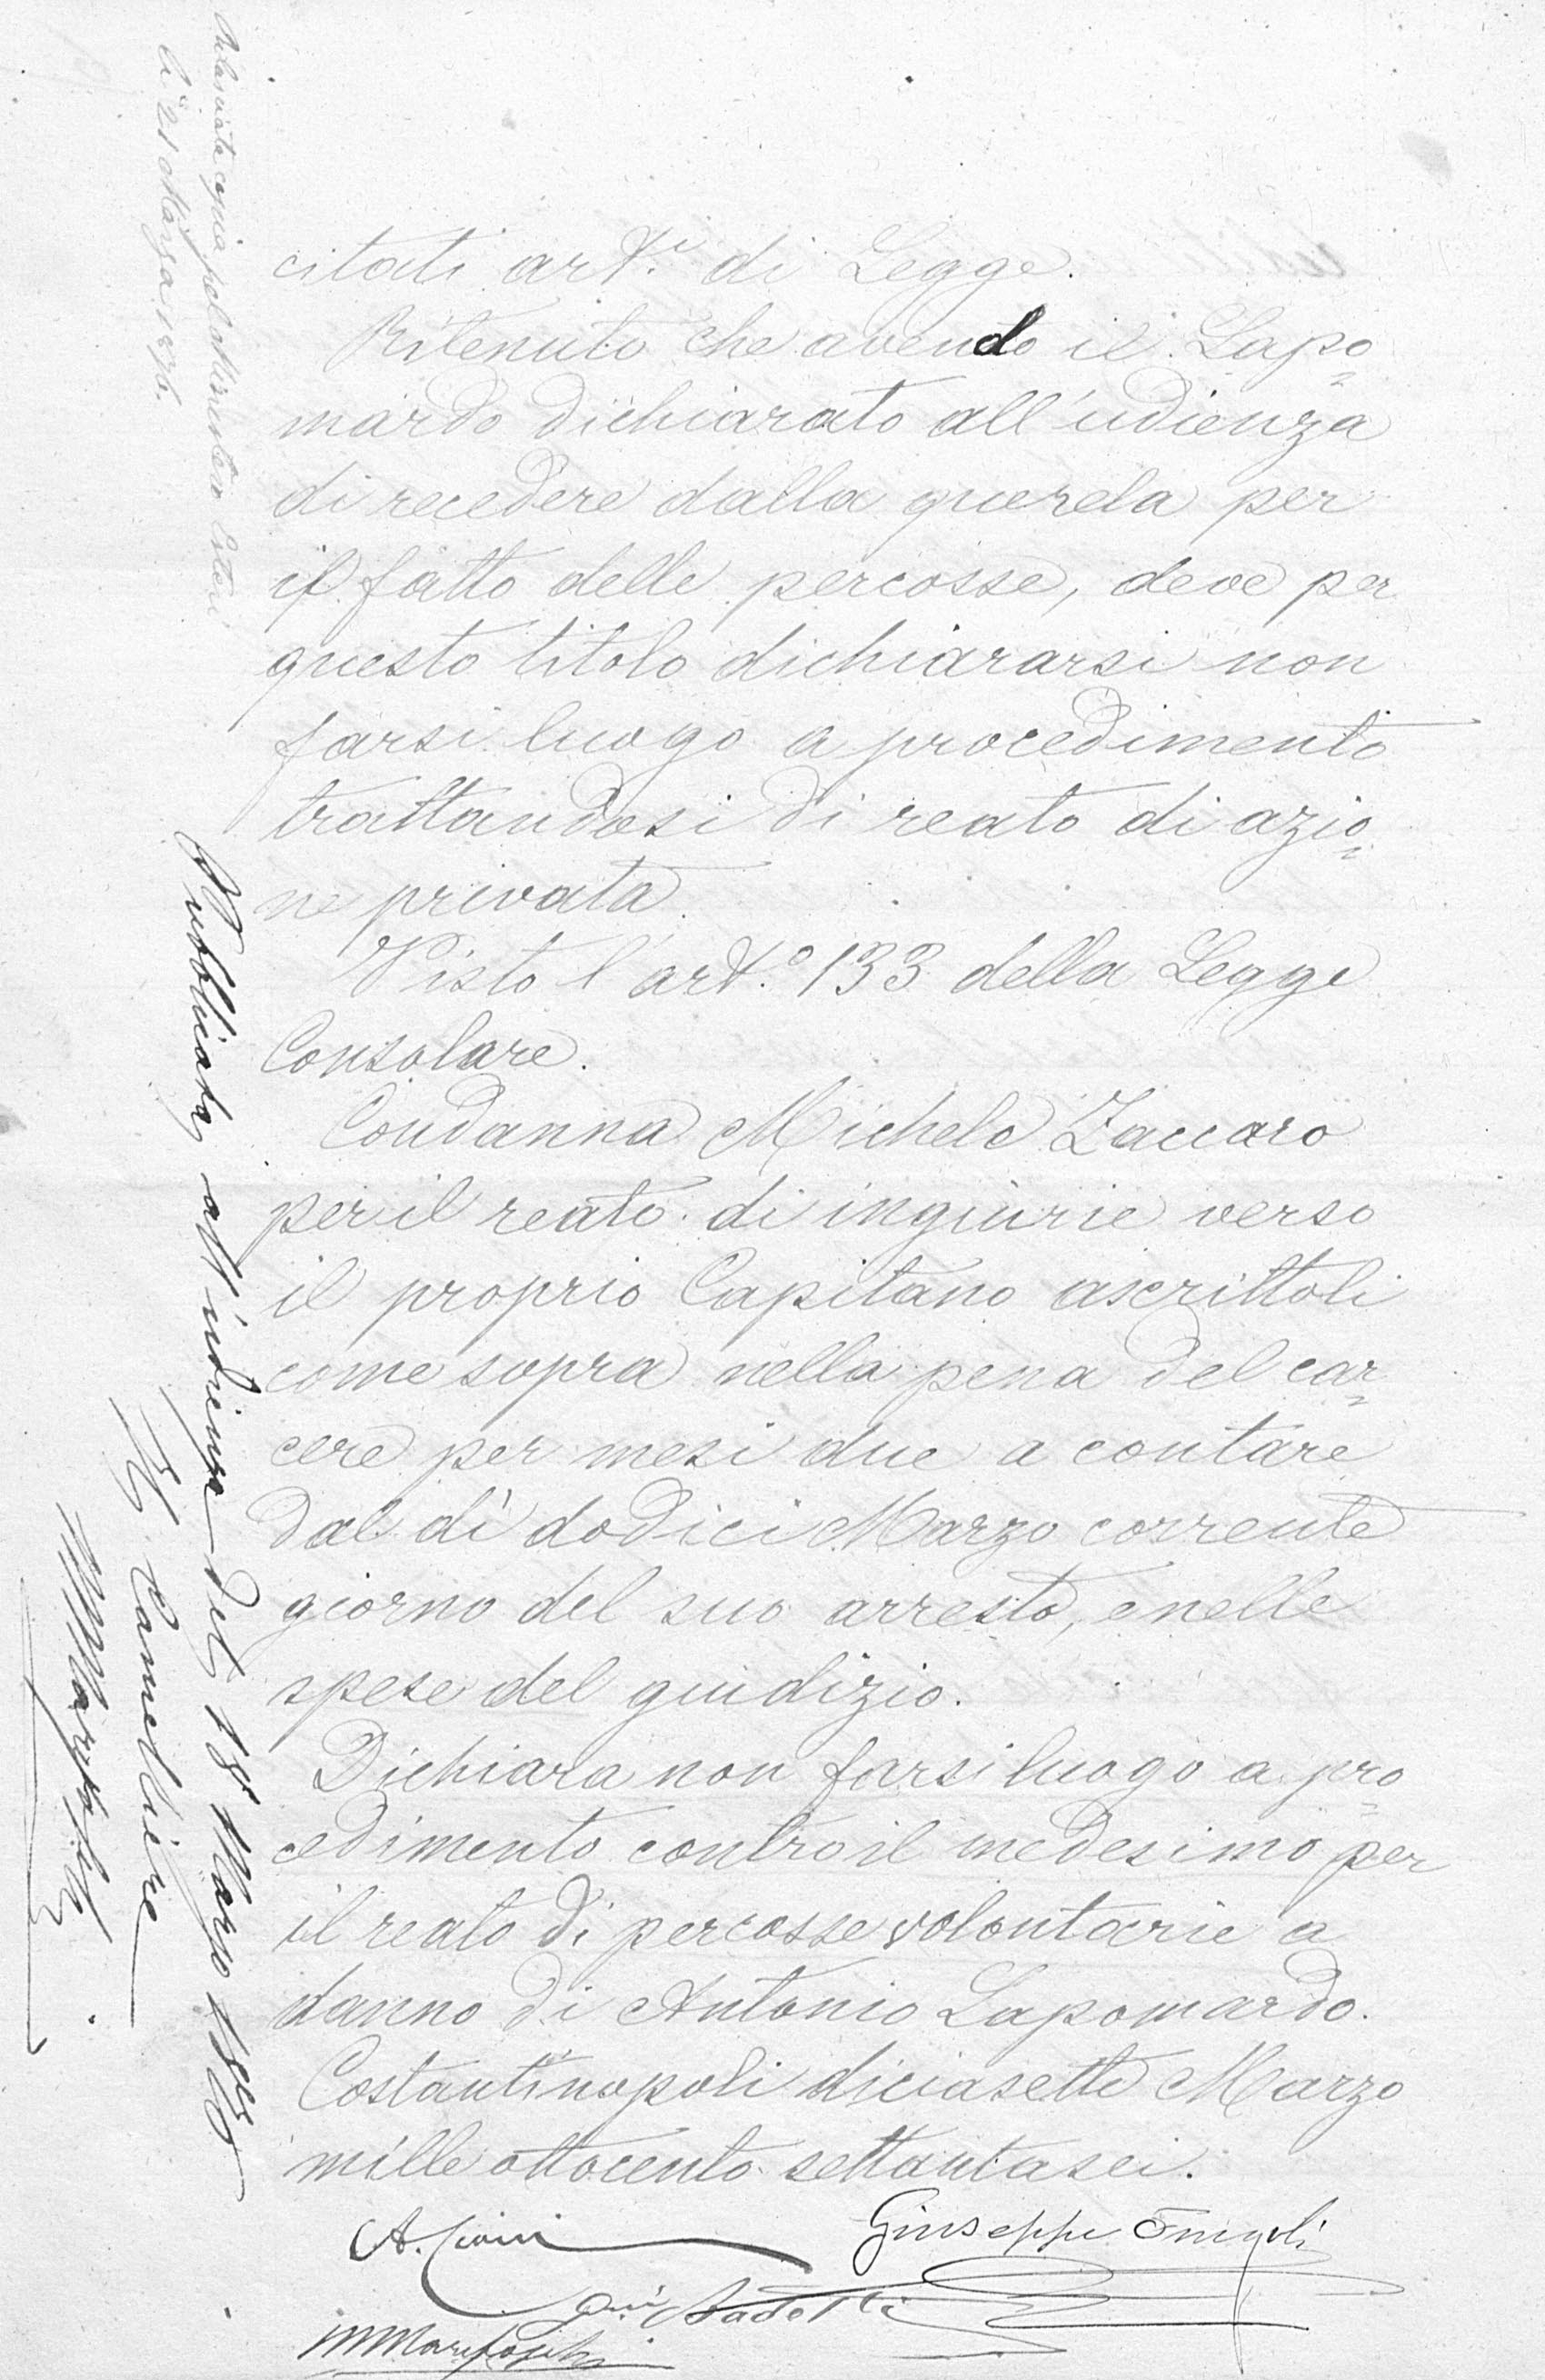 citati art.i di Legge.
Ritenuto che avendo il Lapo=
mardo dichiarato all'udienza
di recedere dalla querela per
il fatto delle percosse, deve per
questo titolo dichiararsi non
farsi luogo a procedimento
trattandosi di reato di azio=
ne privata.
Visto l'art.o 133 della Legge
Consolare.
Condanna Michele Zaccaro
per il reato di ingiurie verso
il proprio Capitano ascrittoli
come sopra nella pena del car=
cere per mesi due a contare
dal dì dodici Marzo corrente
giorno del suo arresto, e nelle
spese del giudizio.
Dichiara non farsi luogo a pro=
cedimento contro il medesimo per
il reato di percosse volontarie a
danno di Antonio Lapomardo.
Costantinopoli diciasette Marzo
mille ottocento settantasei.
Giuseppe
Rilasciata copia pel Ministero Esteri
li 21 Marzo 1876.
Pubblicata all'udienza del 18 Marzo 1876
Il Cancelliere